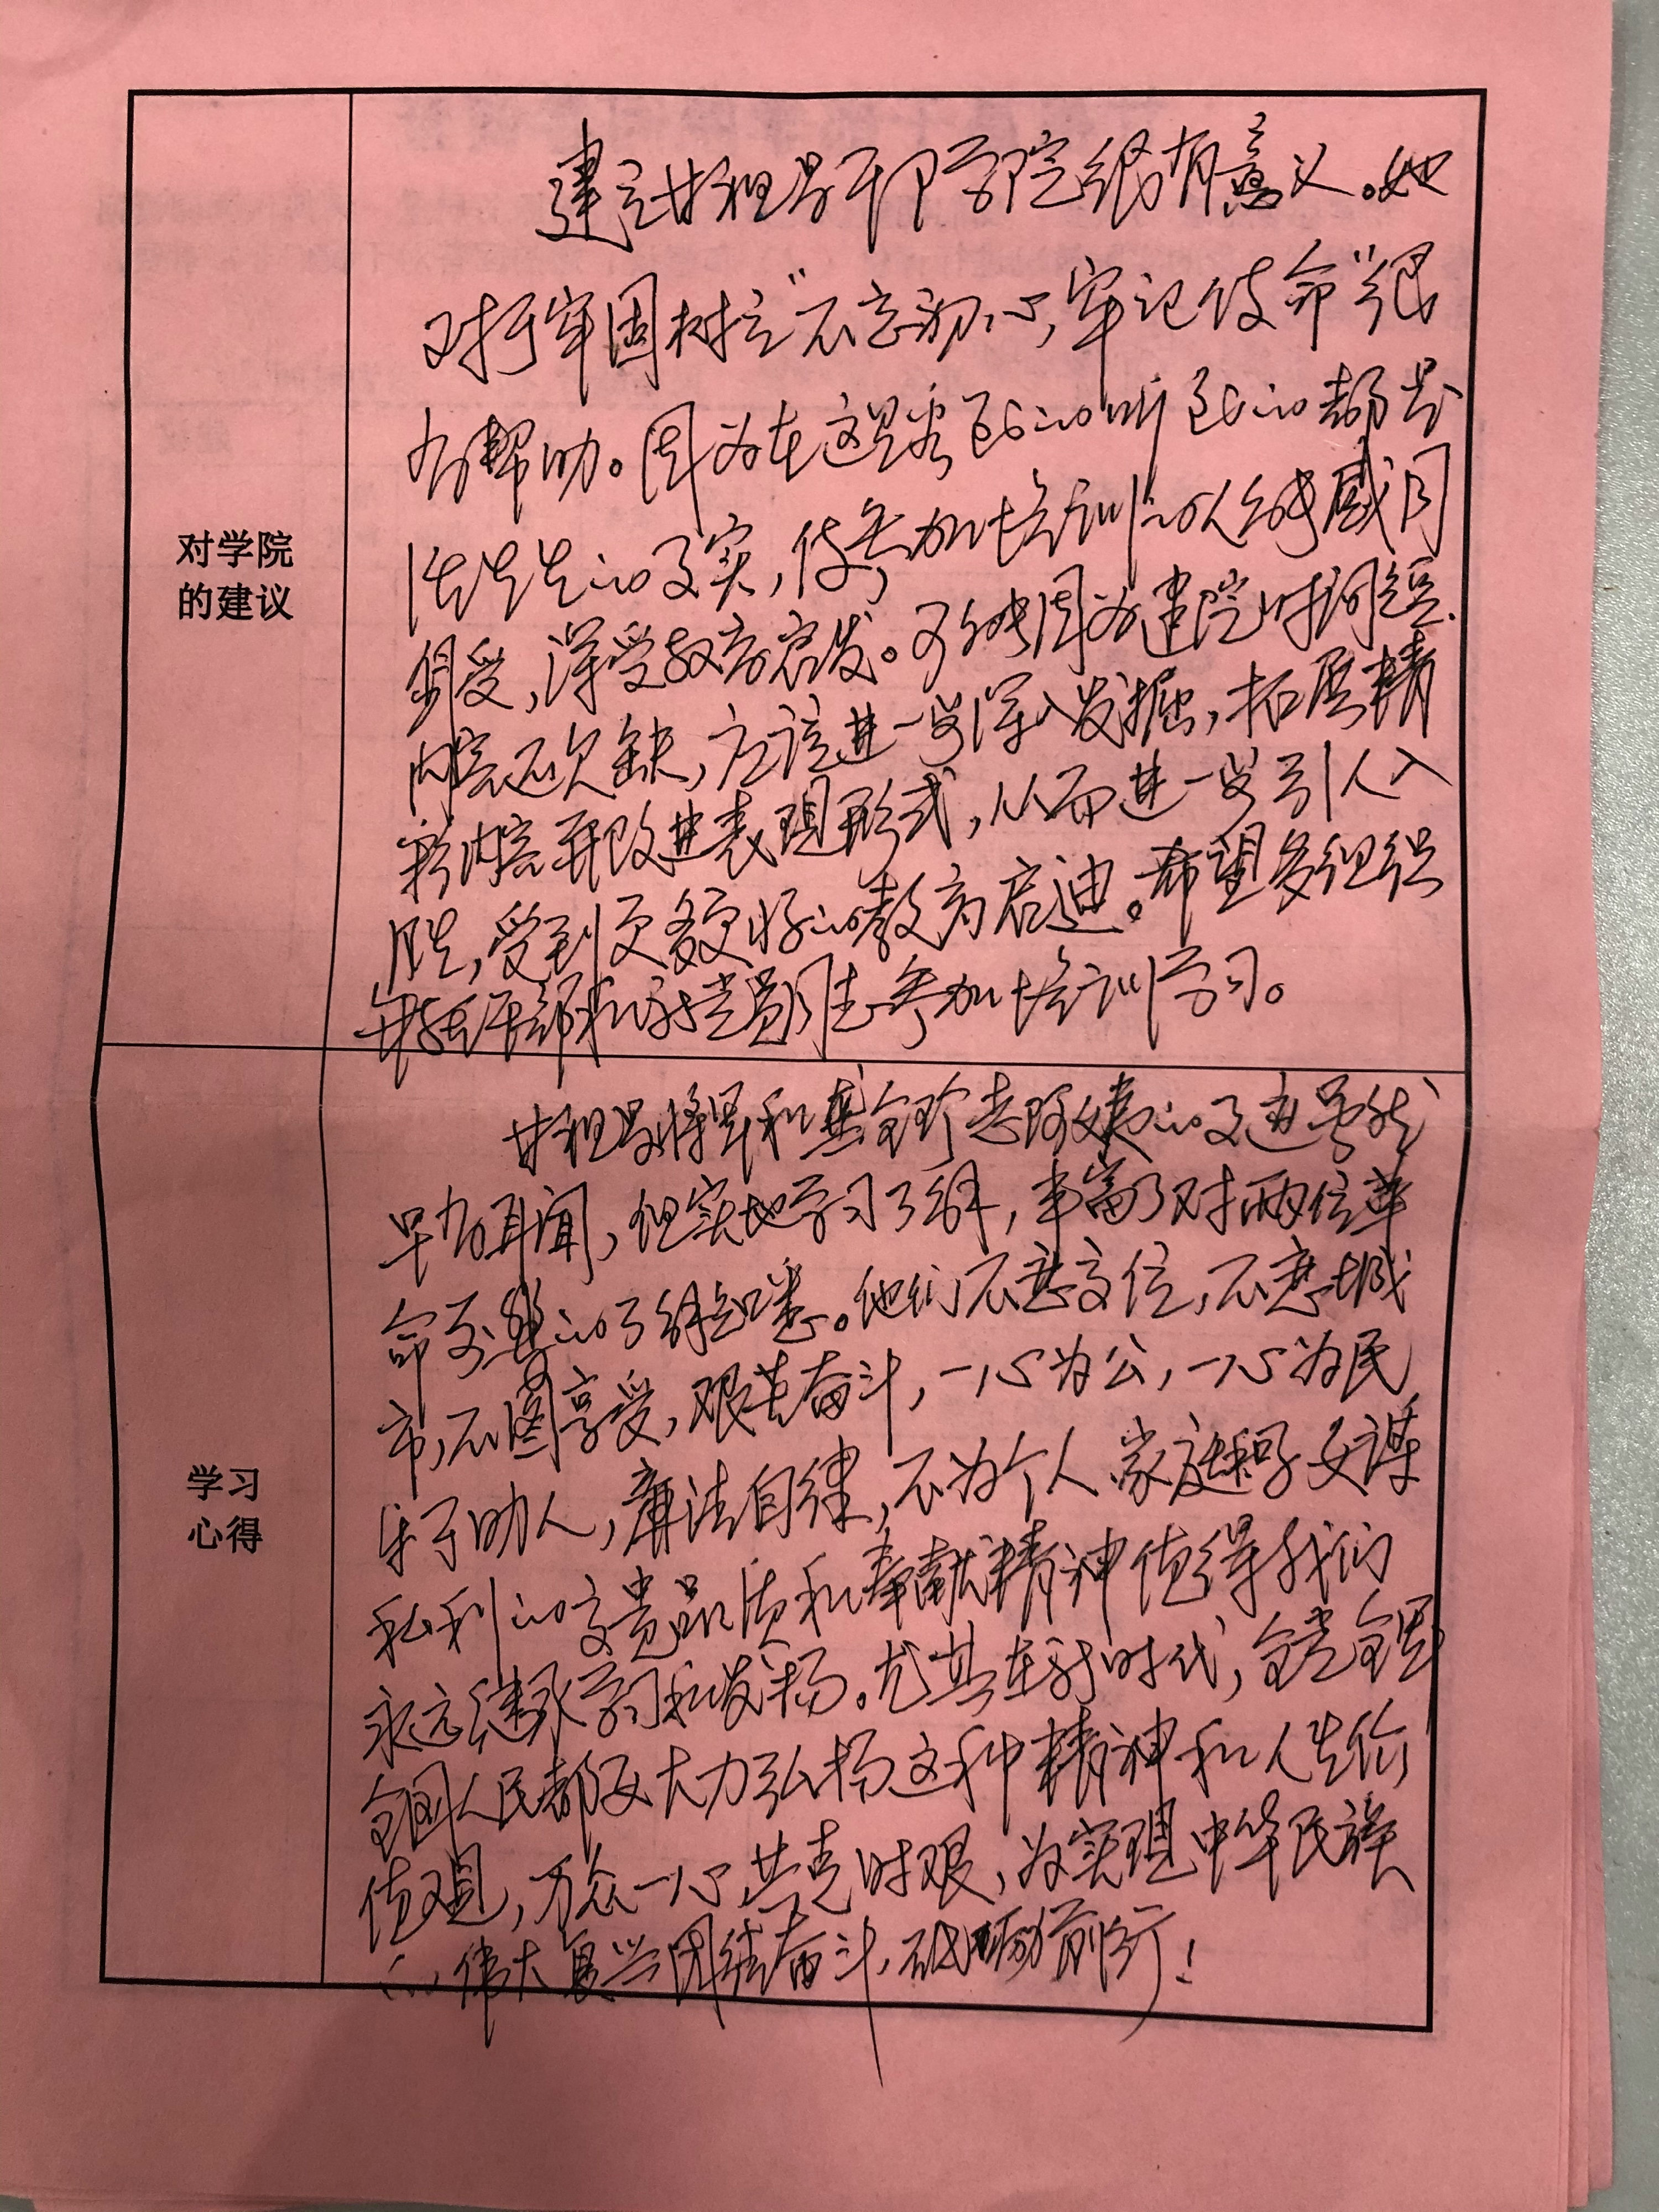 对学院
的建议
建立甘祖昌干部学院很有意义。她
对于牢固树立“不忘初心,牢记使命”很
有帮助。因为在这里看到的听到的都是
活生生的事实,使参加培训的人能感同
身受,深受教育启发。可能因为建院时间短,
内容还欠缺,应该进一步深入发掘,拓展精
彩内容并改进表现形式,从而进一步引人入
胜,受到更多更好的教育启迪。希望多组织
年轻干部和新党员同志参加培训学习。
学习
心得
甘祖昌将军和龚全珍老阿姨的事迹虽然
早有耳闻,但实地学习了解,丰富了对两位革
命前辈的了解知悉。他们不恋高位,不恋城
市,不图享受,艰苦奋斗,一心为公,一心为民
乐于助人,廉洁自律,不为个人、家庭和子女谋
私利的高贵品质和奉献精神值得我们
永远继承学习和发扬。尤其在新时代,全党全军
全国人民都要大力弘扬这种精神和人生价
值观,万众一心,共克时艰,为实现中华民族
的伟大复兴团结奋斗,砥砺前行!